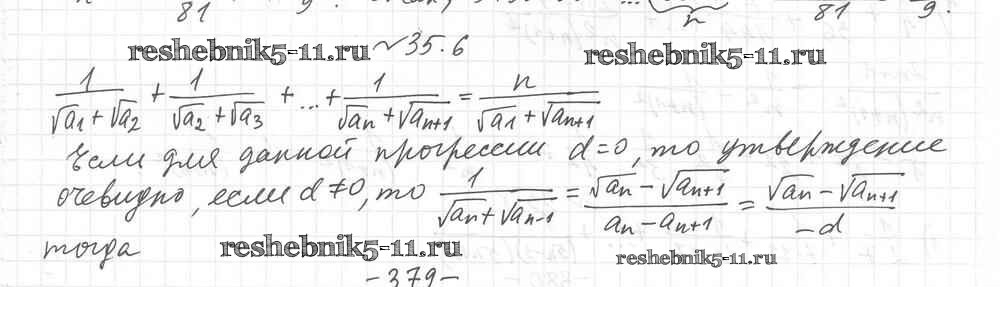 81 9.
reshebnik5-11.ru ~35.6 reshebnik5-11.ru
1/(√a₁+√a₂) + 1/(√a₂+√a₃) + ...+ 1/(√aₙ+√aₙ₊₁) = n/(√a₁+√aₙ₊₁)
Если для данной прогрессии d=0, то утверждение
очевидно, если d≠0, то 1/(√aₙ+√aₙ₋₁) = (√aₙ-√aₙ₊₁)/(aₙ-aₙ₊₁) = (√aₙ-√aₙ₊₁)/(-d)
тогда reshebnik5-11.ru reshebnik5-11.ru
-379-